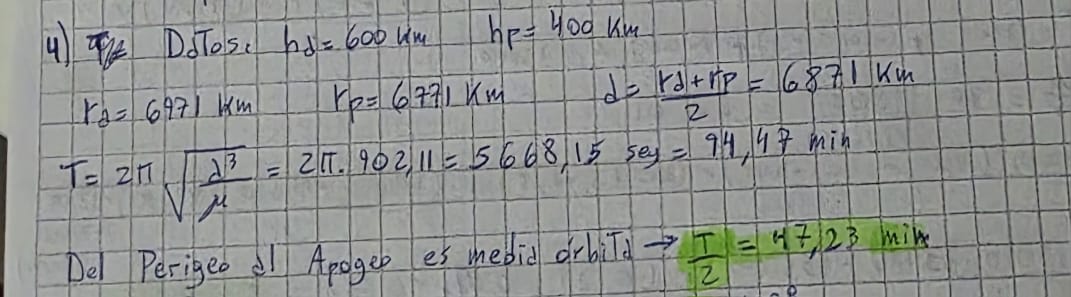 4) Datos: ha = 600 km hp = 400 km
ra = 6971 km rp = 6771 km a = (ra + rp)/2 = 6871 km
T = 2π √(a³/μ) = 2π . 902,11 = 5668,15 seg = 94,47 min
Del Perigeo al Apogeo es media órbita → T/2 = 47,23 min